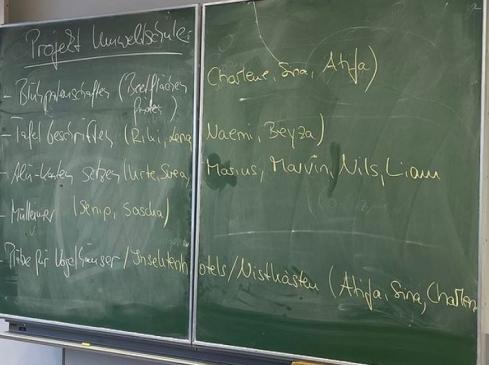 Projekt Umweltschule:
- Blühpatenschaften (Beetflächen
Charlene, Sina, Atifa)
- Tafel beschriften (Riki, Lena, Naemi, Beyza)
- setzen (Mirte, Svea, Marius, Marvin, Nils, Liam
- Mülleimer (Senip, Sascha)
Plätze für Vogelhäuser/Insektenhotels/Nistkästen (Atifa, Sina, Charlen